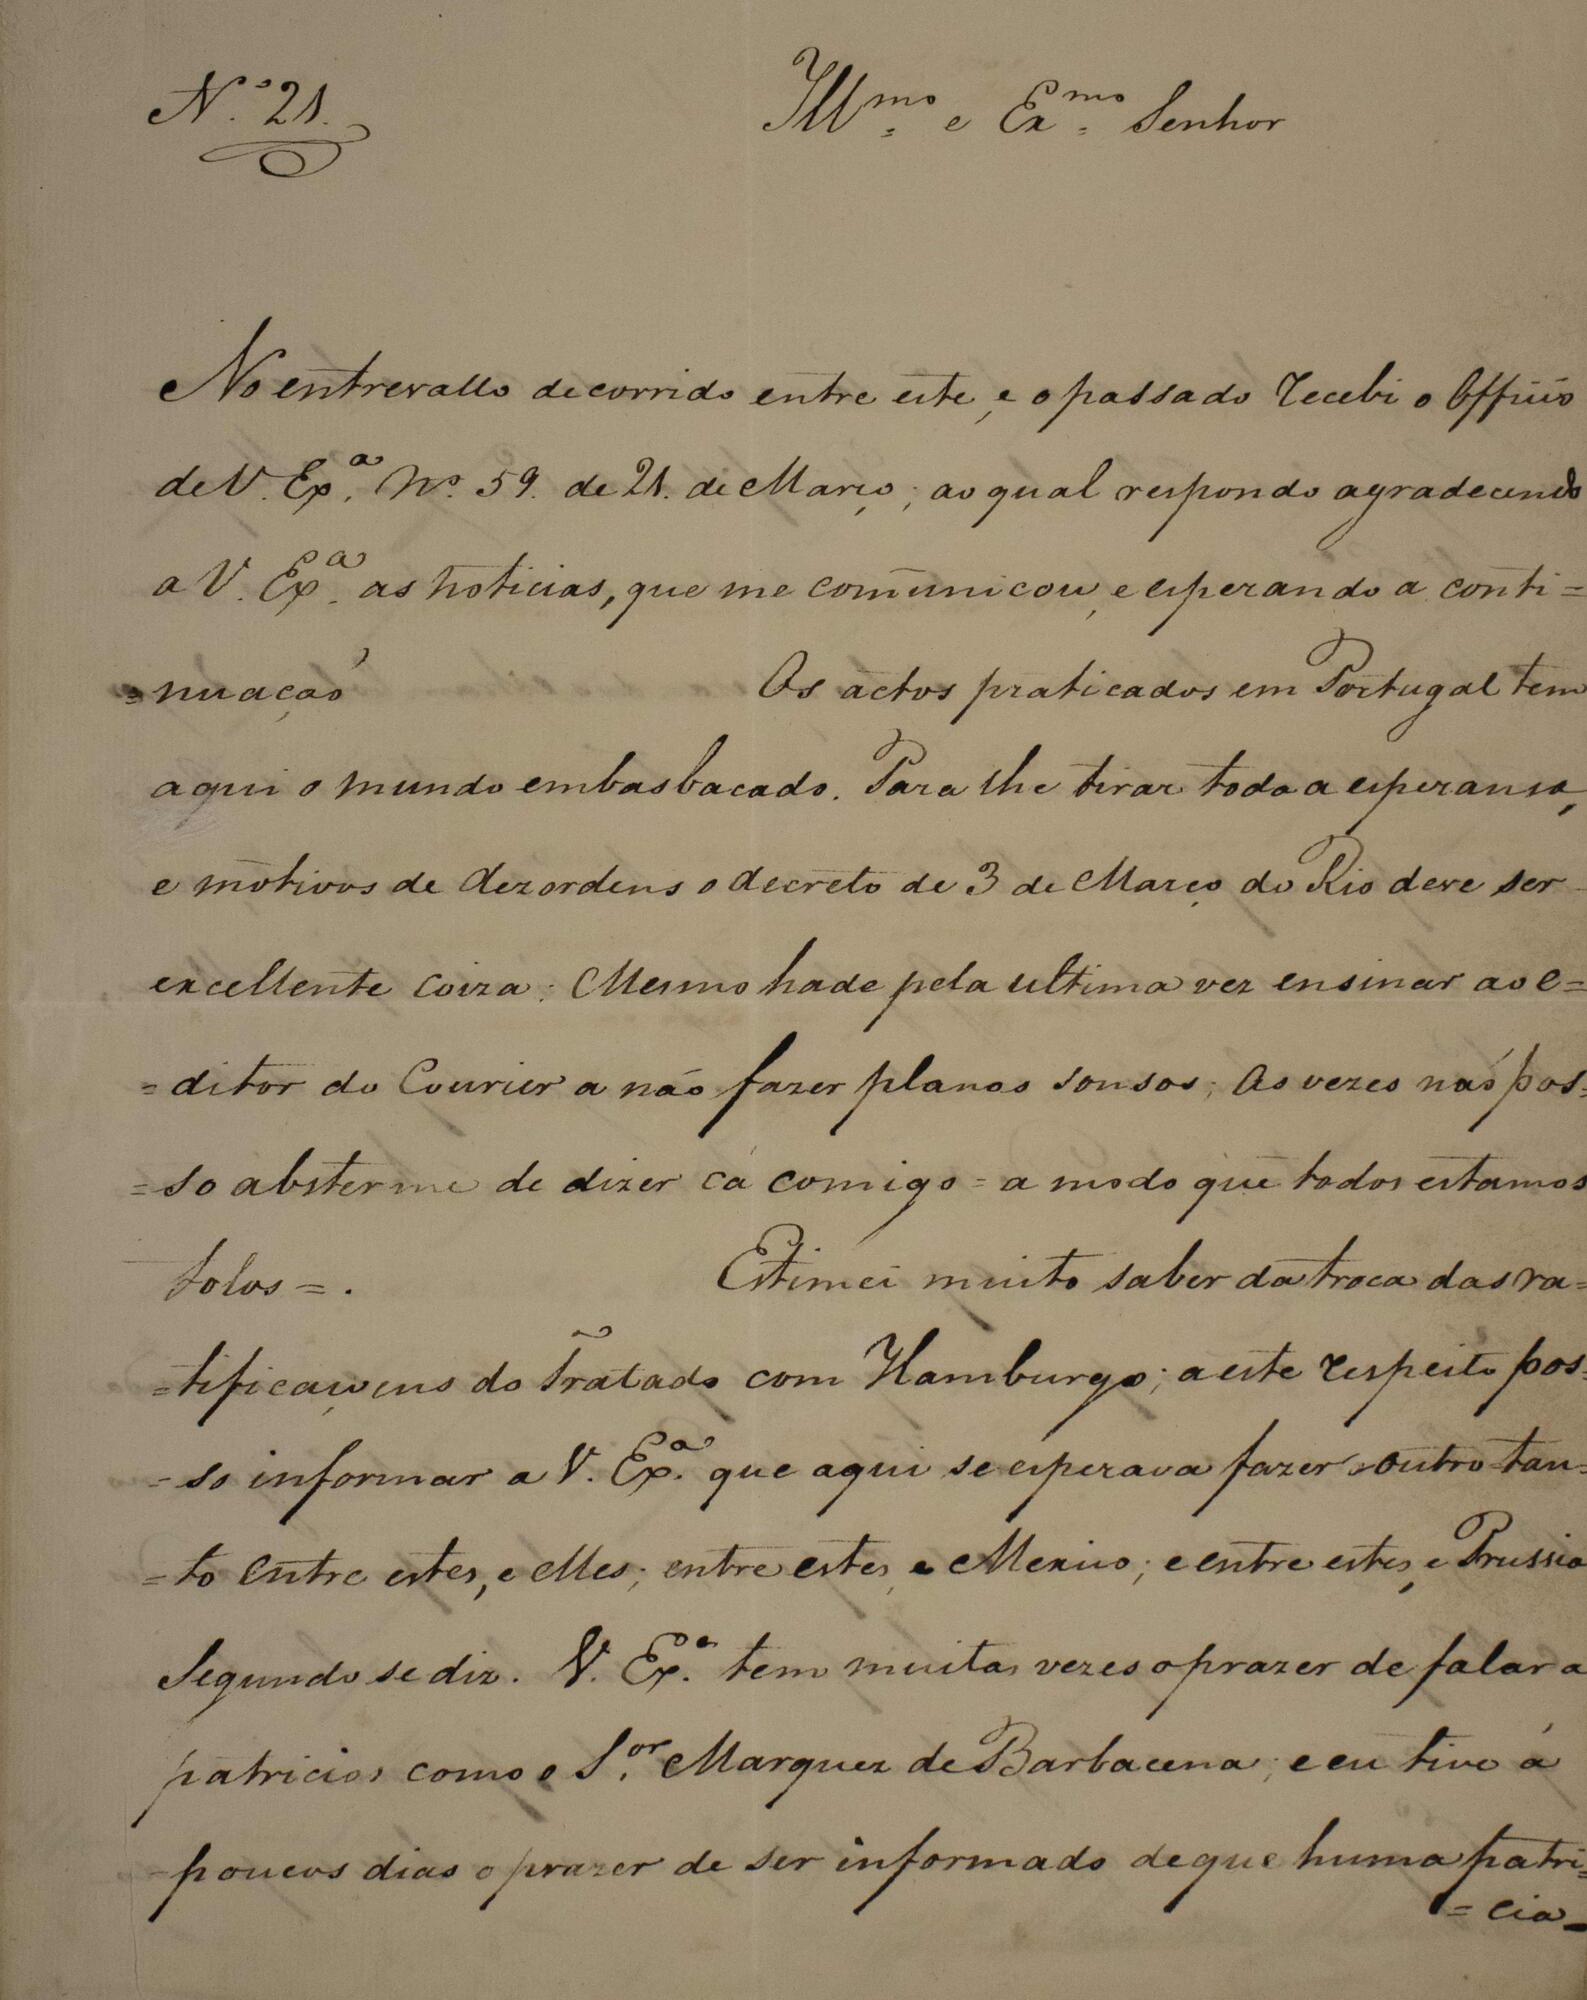 N.º 21.
Ill.mo e Ex.mo Senhor
No entrevallo decorrido entre este, e o passado recebi o Officio
de V. Ex.ª Nº. 59. de 21. de Março; ao qual respondo agradecendo
a V. Ex.ª as noticias, que me comunicou, e esperando a conti=
=nuação Os actos praticados em Portugal tem
aqui o mundo embasbacado. Para lhe tirar toda a esperansa,
e motivos de dezordens o decreto de 3 de Março do Rio deve ser
excellente coiza: Mesmo hade pela ultima vez ensinar ao e=
=ditor do Courier a não fazer planos sonsos; As vezes não pos=
=so abster me de dizer cá comigo = a modo que todos estamos
tolos = . Estimei muito saber da troca das ra=
=tificaçoens do Tratado com Hamburgo; a este respeito pos=
=so informar a V. Ex.ª que aqui se esperava fazer outro tan=
=to entre estes, e elles; entre estes, e Mexico; e entre estes, e Prussia
Segundo se diz. V. Ex.ª tem muitas vezes o prazer de falar a
patricios como o S.or Marquez de Barbacena; e eu tive á
poucos dias o prazer de ser informado de que huma patri=
=cia